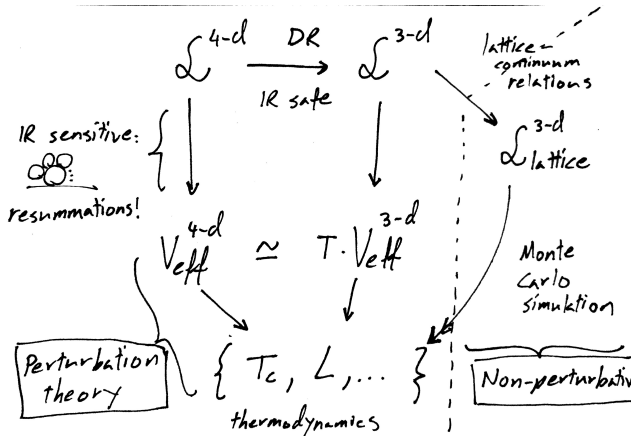 ℒ^4-d DR ℒ^3-d
IR safe
lattice-
continuum
relations
IR sensitive:
resummations!
ℒ^3-d_lattice
V_eff^4-d ≃ T · V_eff^3-d
Monte
Carlo
simulation
Perturbation
theory
{ T_c, L, ... }
thermodynamics
Non-perturbative